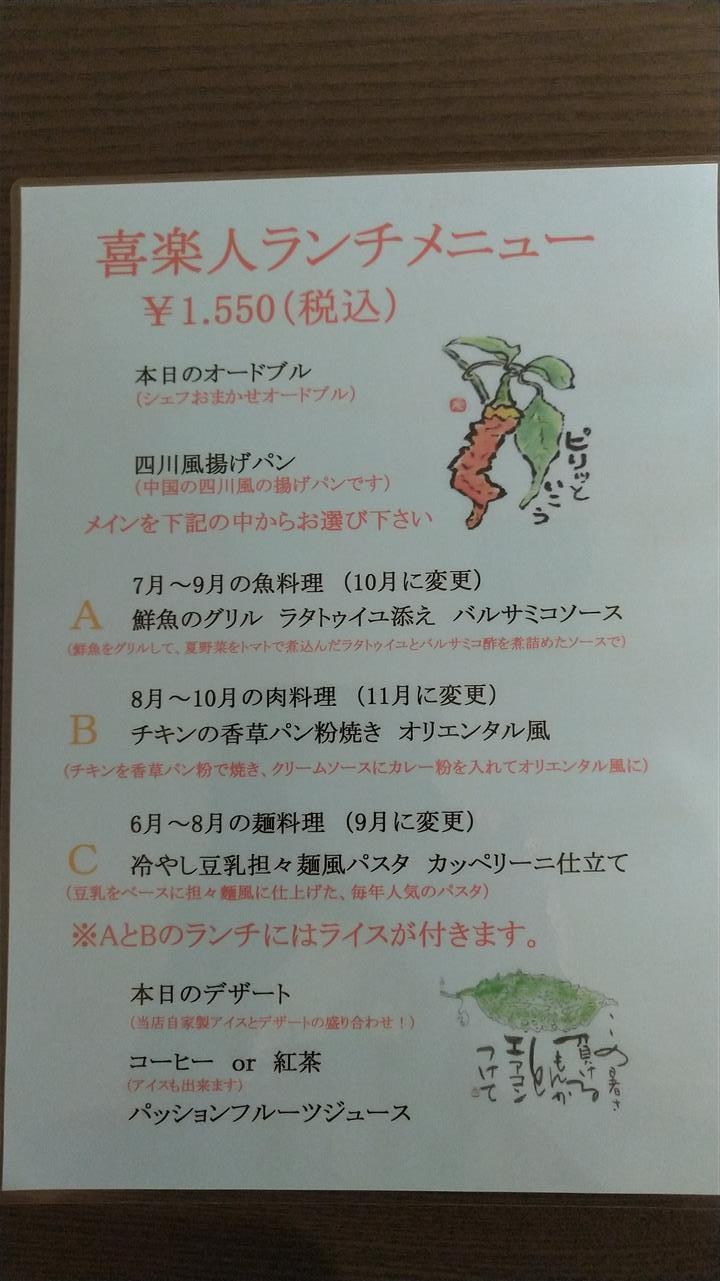 喜楽人ランチメニュー
￥1.550（税込）
本日のオードブル
（シェフおまかせオードブル）
四川風揚げパン
（中国の四川風の揚げパンです）
ピリッと
いこう
メインを下記の中からお選び下さい
7月～9月の魚料理 （10月に変更）
A 鮮魚のグリル ラタトゥイユ添え バルサミコソース
（鮮魚をグリルして、夏野菜をトマトで煮込んだラタトゥイユとバルサミコ酢を煮詰めたソースで）
8月～10月の肉料理 （11月に変更）
B チキンの香草パン粉焼き オリエンタル風
（チキンを香草パン粉で焼き、クリームソースにカレー粉を入れてオリエンタル風に）
6月～8月の麺料理 （9月に変更）
C 冷やし豆乳担々麺風パスタ カッペリーニ仕立て
（豆乳をベースに担々麺風に仕上げた、毎年人気のパスタ）
※AとBのランチにはライスが付きます。
本日のデザート
（当店自家製アイスとデザートの盛り合わせ！）
コーヒー or 紅茶
（アイスも出来ます）
パッションフルーツジュース
この暑さ
負ける
もんか
エアコン
つけて